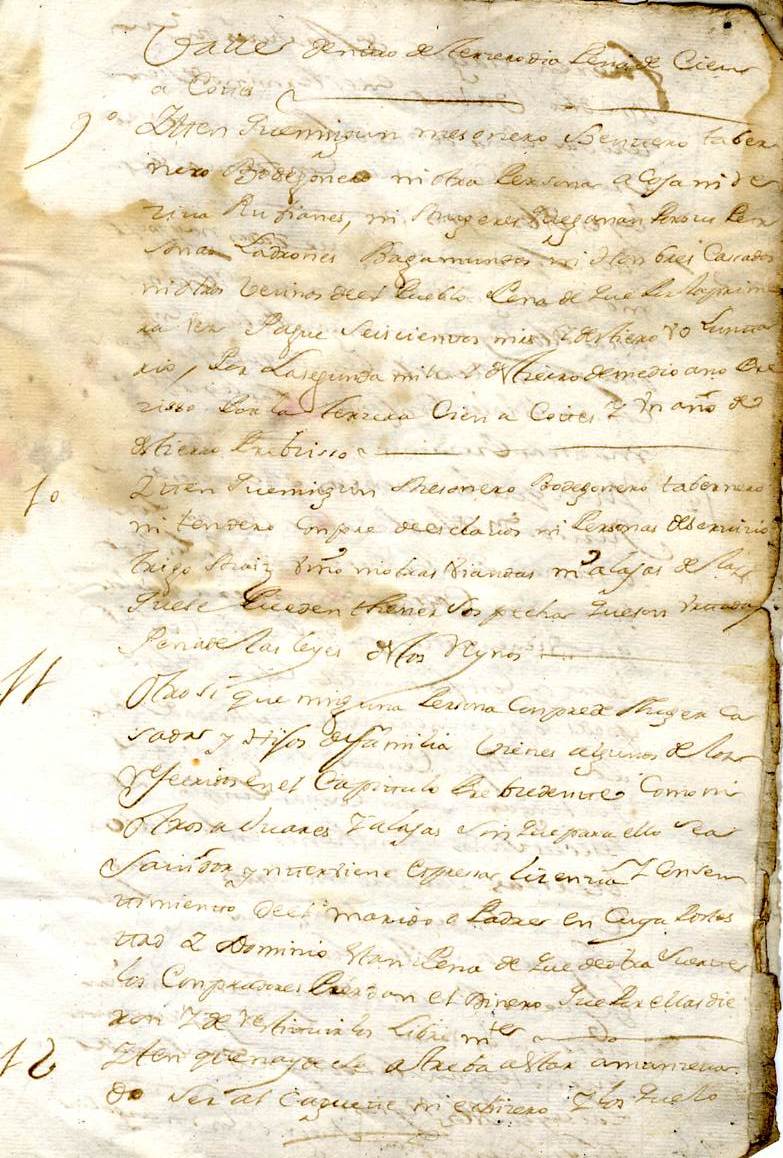 Calle dentro de tercero dia Pena de Cien
açotes
9º Ytten que ningun mesonero Bentero taber
nero Bodegonero ni otra Persona acoja ni de
Rufianes, ni mugeres que ganan Por su Per
sona Ladrones Bagamundos ni Honbres Casados
ni otros Vecinos de el Pueblo Pena de que Por la prime
ra vez Pague Seiscientos mrs Y destierro volunta
rio, Por la segunda mill Y destierro de medio año Pre
cisso Por la tercera Cien açotes Y Vn año de
destierro Precisso
10 Ytten que ningun Mesonero Bodegonero tabernero
ni tendero Conpre de esclavos ni Personas de servicio
trigo Maiz vino ni otras viandas ni alajas de las
que se Pueden thener Sospecha que son hurtadas
Pena de las leyes de estos Reynos
11 Otro si que ninguna Persona Conpre de Muger ca
sada y Hijos de familia vienes algunos de los
Referidos en el Capitulo Precedente Como ni
otros ajuares Y alajas Sin que para ello sea
y interviene Expressa licencia Y Consen
timiento de el marido o Padres en Cuya Potes
tad Y Dominio estan Pena de que de otra Suerte
los Conpradores Pierdan el Dinero que Por ellas die
ron Y de Restituirlos libre mte
12 Ytten que naide se atreba a estar amanceva
do sea al Casado ni soltero Y los que lo